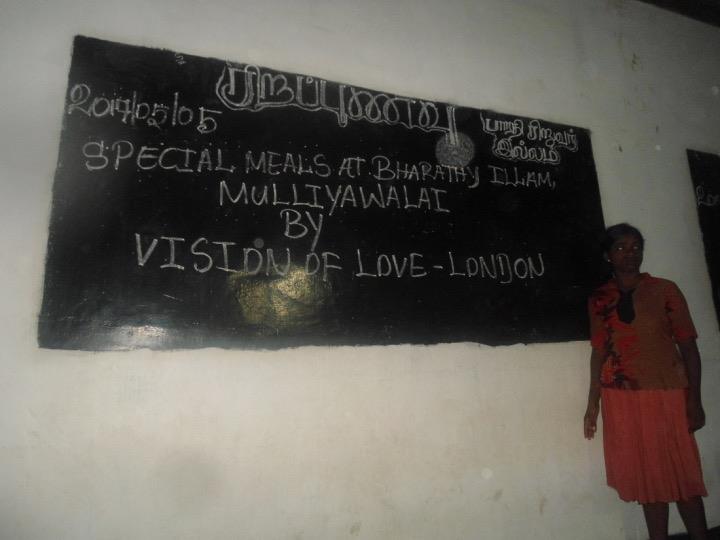 2014/05/05
சிறப்புணவு
பாரதி சிறுவர்
இல்லம்
SPECIAL MEALS AT BHARATHY ILLAM,
MULLIYAWALAI
BY
VISION OF LOVE - LONDON